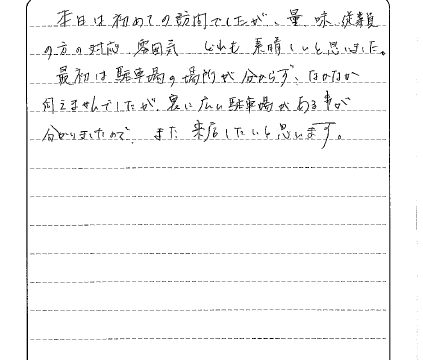 本日は初めての訪問でしたが、量、味、従業員
の方の対応、雰囲気 どれも素晴しいと思いました。
最初は駐車場の場所が分からず、なかなか
伺えませんでしたが、裏に広い駐車場がある事が
分かりましたので、また来店したいと思います。